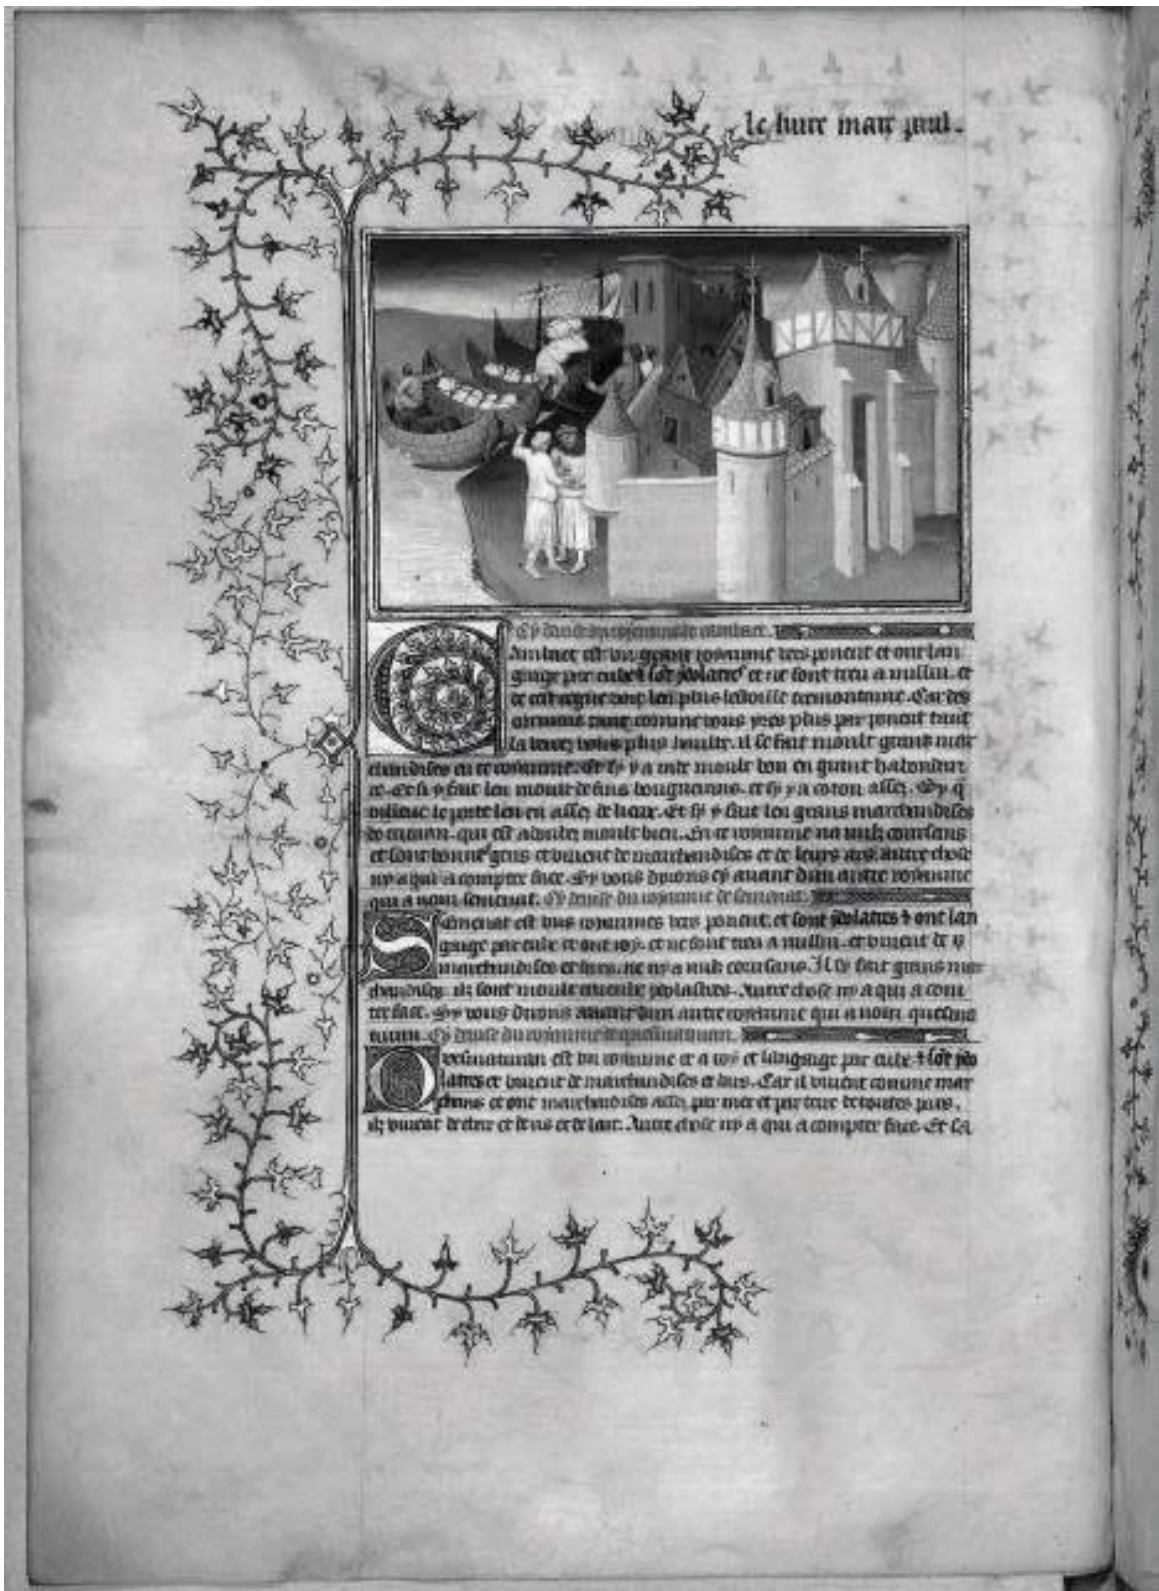 le livre marc paul.
Cy devise du royaume de cambaet.
Cambaet est un grant royaume vers ponent et ont lan
guaige par eulx & sõt ydolatres et ne sont treu a nullui. et
de cest regne voit len plus lestoille tremontaine. Car des
or mais tant comme vous yres plus par ponent tant
la verez vous plus haulte. il se fait moult grans mar
chandises en ce royaume. Et sy y a inde moult bon en grant habondan
ce. Et si y fait len moult de fins bouguerans. et sy y a coton assez. Sy q
le porte len en assez de lieux. Et sy y fait len grans marchandises
de cuirain. qui est adoubez moult bien. En ce royaume na nulz coursans
et sont bonnes gens et vivent de marchandises et de leurs ars. autre chose
ny a qui a compter face. Sy vous dirons cy avant dun autre royaume
qui a nom semenat. Cy devise du royaume de semenat.
Semenat est uns royaumes vers ponent. et sont ydolatres & ont lan
guaige par eulx et ont roy. et ne sont treu a nullui. et vivent de
marchandises et dars. ne ny a nulz coursans. Il se fait grans mar
chandises. ilz sont moult ydolastres. Autre chose ny a qui a com
ter face. Sy vous dirons avant dun autre royaume qui a nom quesma
turan. Cy devise du royaume de quesmaturan.
Quesmaturan est un royaume et a roy et languaige par eulx. & sõt ydo
latres et vivent de marchandises et dars. Car il vivent comme mar
chans et ont marchandises assez par mer et par terre de toutes pars.
ilz vivent de char et de ris et de lait. Autre chose ny a qui a compter face. Et sa